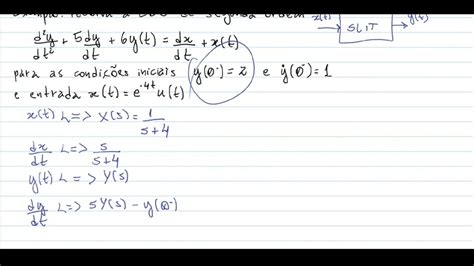 Exemplo: resolva a EDO de segunda ordem
x(t) SLIT
d²y/dt² + 5dy/dt + 6y(t) = dx/dt + x(t)
para as condições iniciais y(0⁻) = 2 e ẏ(0⁻) = 1
e entrada x(t) = e^-4t u(t)
x(t) L=> X(s) = 1/s+4
dx/dt L=> s/s+4
y(t) L=> Y(s)
dy/dt L=> sY(s) - y(0⁻)